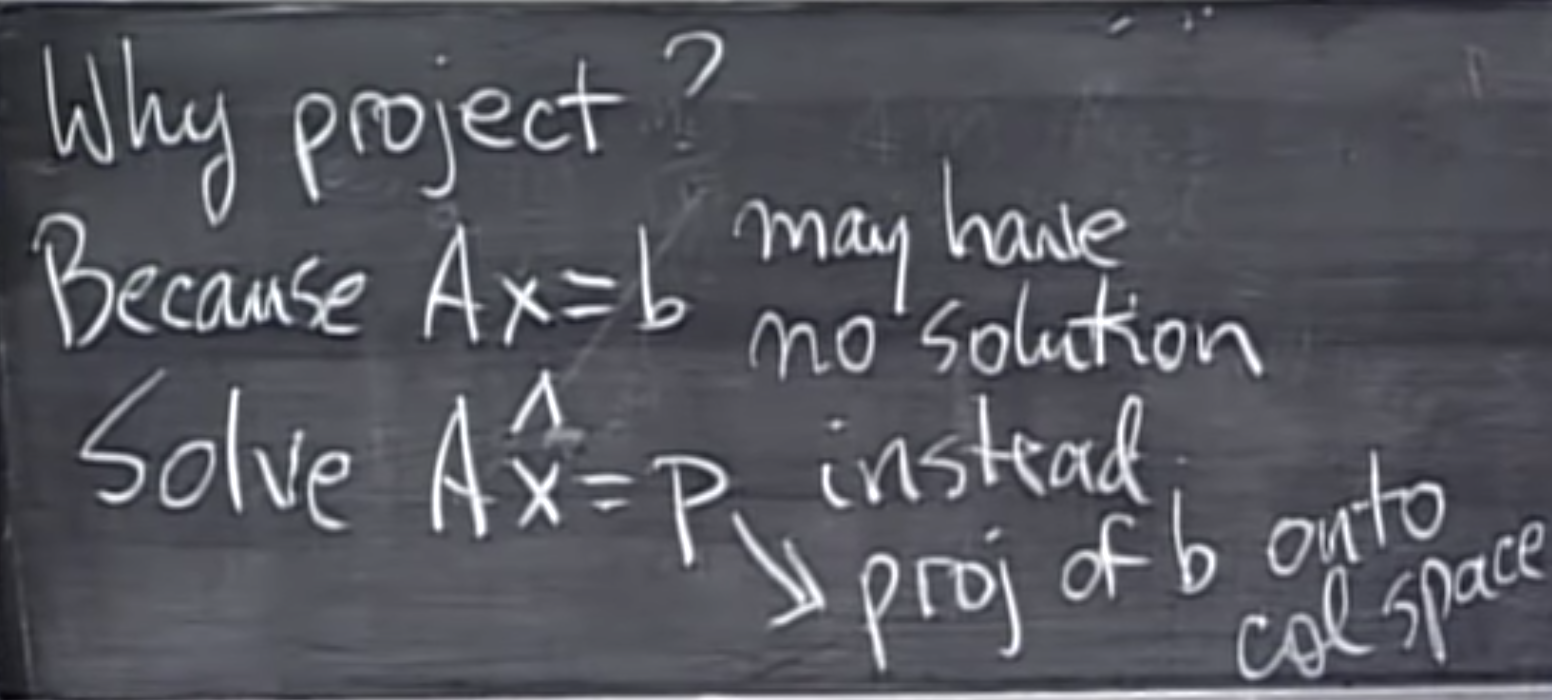 Why project?
Because Ax=b may have
no solution
Solve Ax̂=p instead.
↘ proj of b onto
col space